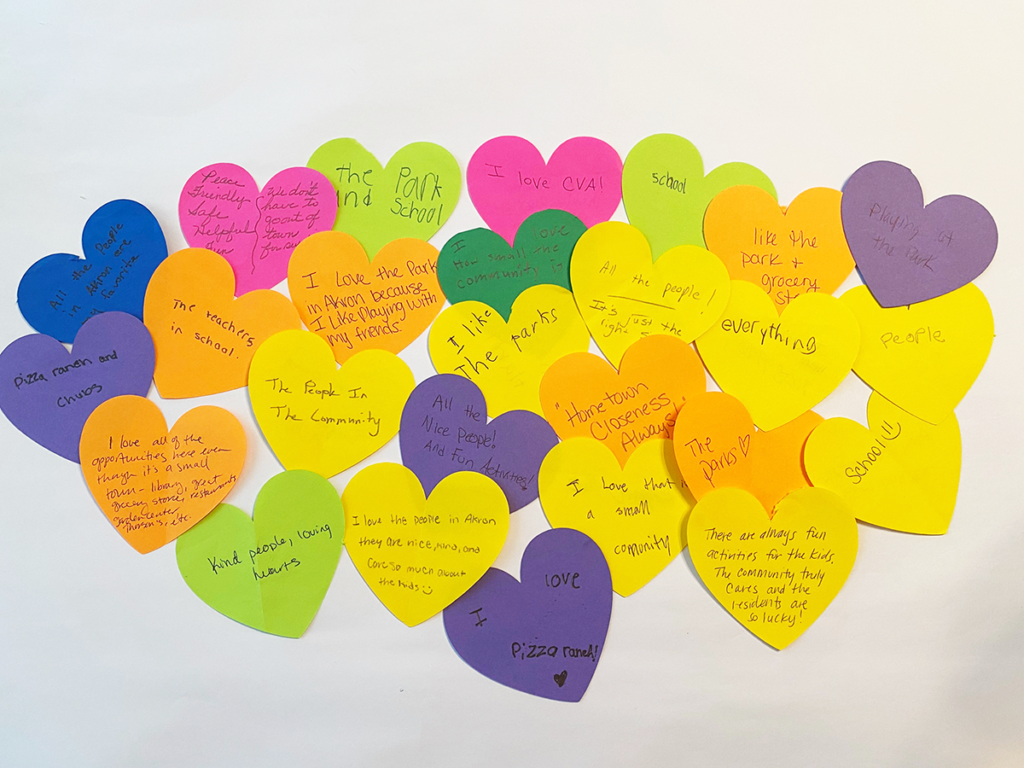 Peace
Friendly
Safe
Helpful
Fun
We don't
have to
go out of
town
for
the Park
and School
I love CVA!
school
Playing at
the Park
All the People
in Akron are
favorite
I love
How small the
community is
All the people!
It's just the
right
like the
park +
grocery
I Love the Park
in Akron because
I like Playing with
my friends.
The teachers
in school.
I like
The parks
everything
People
Pizza ranch and
chubs
The People In
The Community
All the
Nice People!
And Fun Activities!
"Hometown
Closeness
Always"
The
parks
School!
I love all of the
opportunities here even
though it's a small
town - library, great
grocery store, restaurants,
garden center
etc.
Kind people, loving
hearts
I love the people in Akron
they are nice, kind, and
care so much about
the kids
I Love that
a small
comunity
There are always fun
activities for the kids.
The community truly
cares and the
residents are
so lucky!
I love
Pizza ranch!